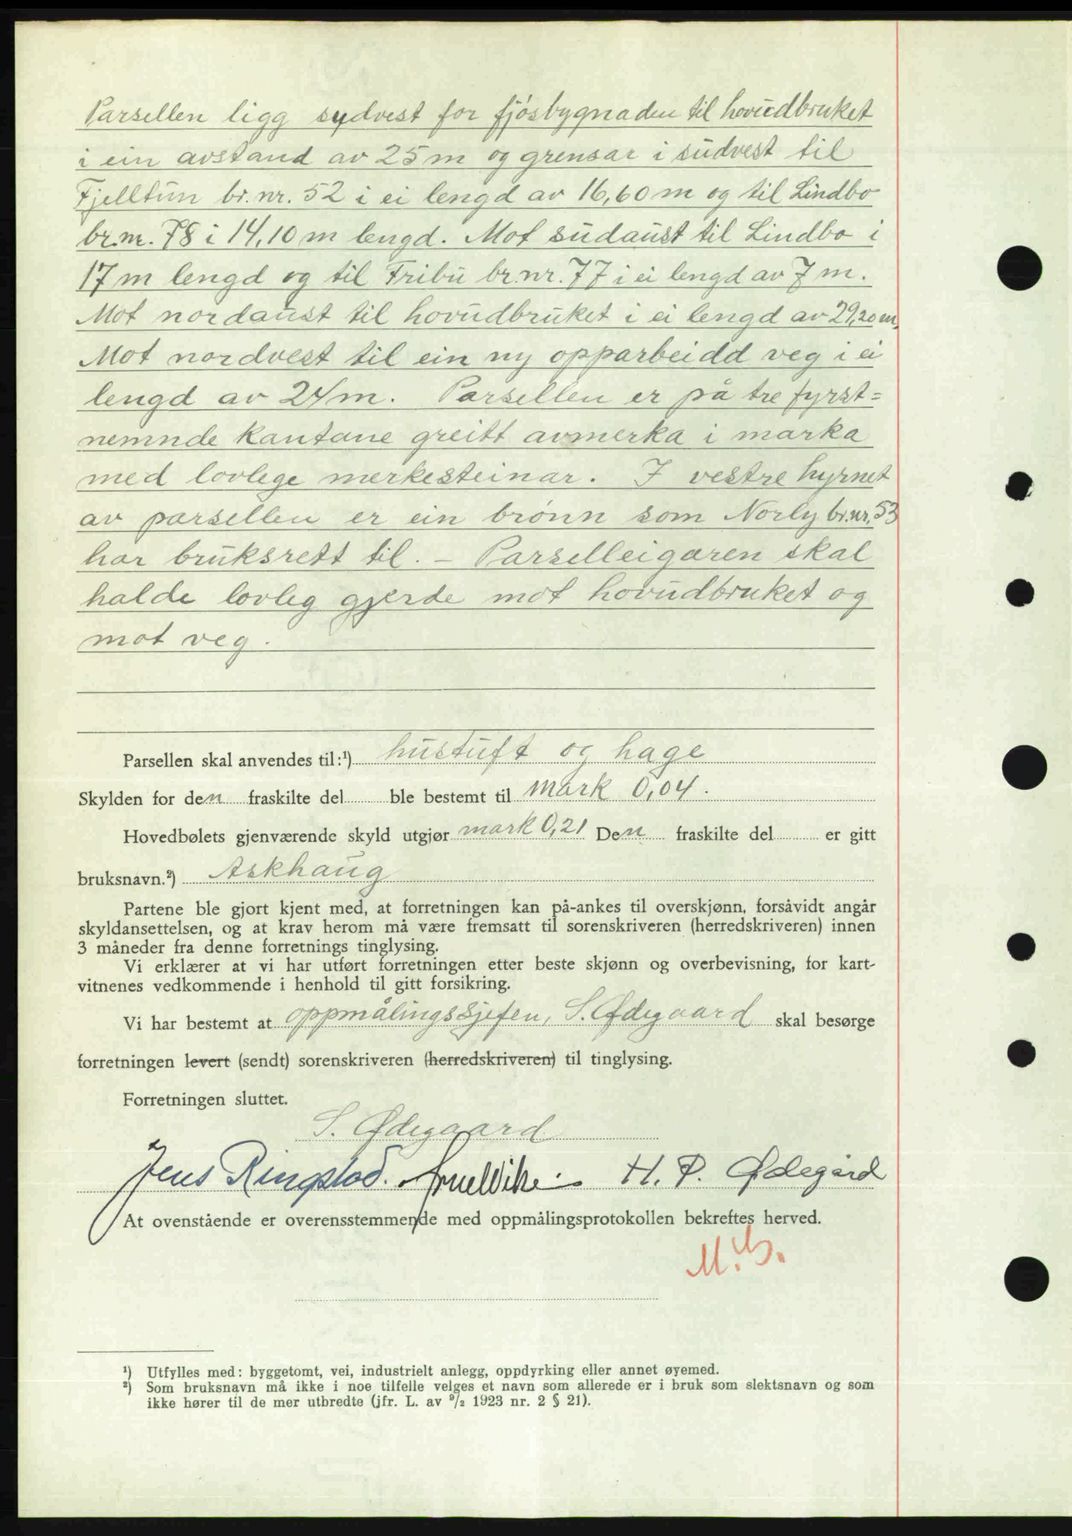 Parsellen ligg sydvest for fjósbygnaden til hovudbruket
i ein avstand av 25 m og grensar i südvest til
Fjelltun br. nr. 52 i ei lengd av 16,60 m og til Lindbo
br.nr. 78 i 14,10 m lengd. Mot südaust til Lindbo i
17 m lengd og til Fribu br.nr. 77 i ei lengd av 7 m.
Mot nordaust til hovudbruket i ei lengd av 29,20 m,
Mot nordvest til ein ny opparbeidd veg i ei
lengd av 24 m. Parsellen er på tre fyrst=
nemnde kantane greitt avmerka i marka
med lovlege merkesteinar. I vestre hyrnet
av parsellen er ein brønn som Norly br.nr. 53
har bruksrett til. — Parselleigaren skal
halde lovleg gjerde mot hovudbruket og
mot veg.
Parsellen skal anvendes til:¹) hustuft og hage
Skylden for den fraskilte del ble bestemt til mark 0,04.
Hovedbølets gjenværende skyld utgjør mark 0,21 Den fraskilte del er gitt
bruksnavn.²) Askhaug
Partene ble gjort kjent med, at forretningen kan på-ankes til overskjønn, forsåvidt angår
skyldansettelsen, og at krav herom må være fremsatt til sorenskriveren (herredskriveren) innen
3 måneder fra denne forretnings tinglysing.
Vi erklærer at vi har utført forretningen etter beste skjønn og overbevisning, for kart-
vitnenes vedkommende i henhold til gitt forsikring.
Vi har bestemt at oppmålingssjefen, S. Ødegaard skal besørge
forretningen levert (sendt) sorenskriveren (herredskriveren) til tinglysing.
Forretningen sluttet.
S. Ødegaard
Jens Ringstad. Arne Vike H. P. Ødegård
At ovenstående er overensstemmende med oppmålingsprotokollen bekreftes herved.
¹) Utfylles med: byggetomt, vei, industrielt anlegg, oppdyrking eller annet øyemed.
²) Som bruksnavn må ikke i noe tilfelle velges et navn som allerede er i bruk som slektsnavn og som
ikke hører til de mer utbredte (jfr. L. av ⁹/₂ 1923 nr. 2 § 21).